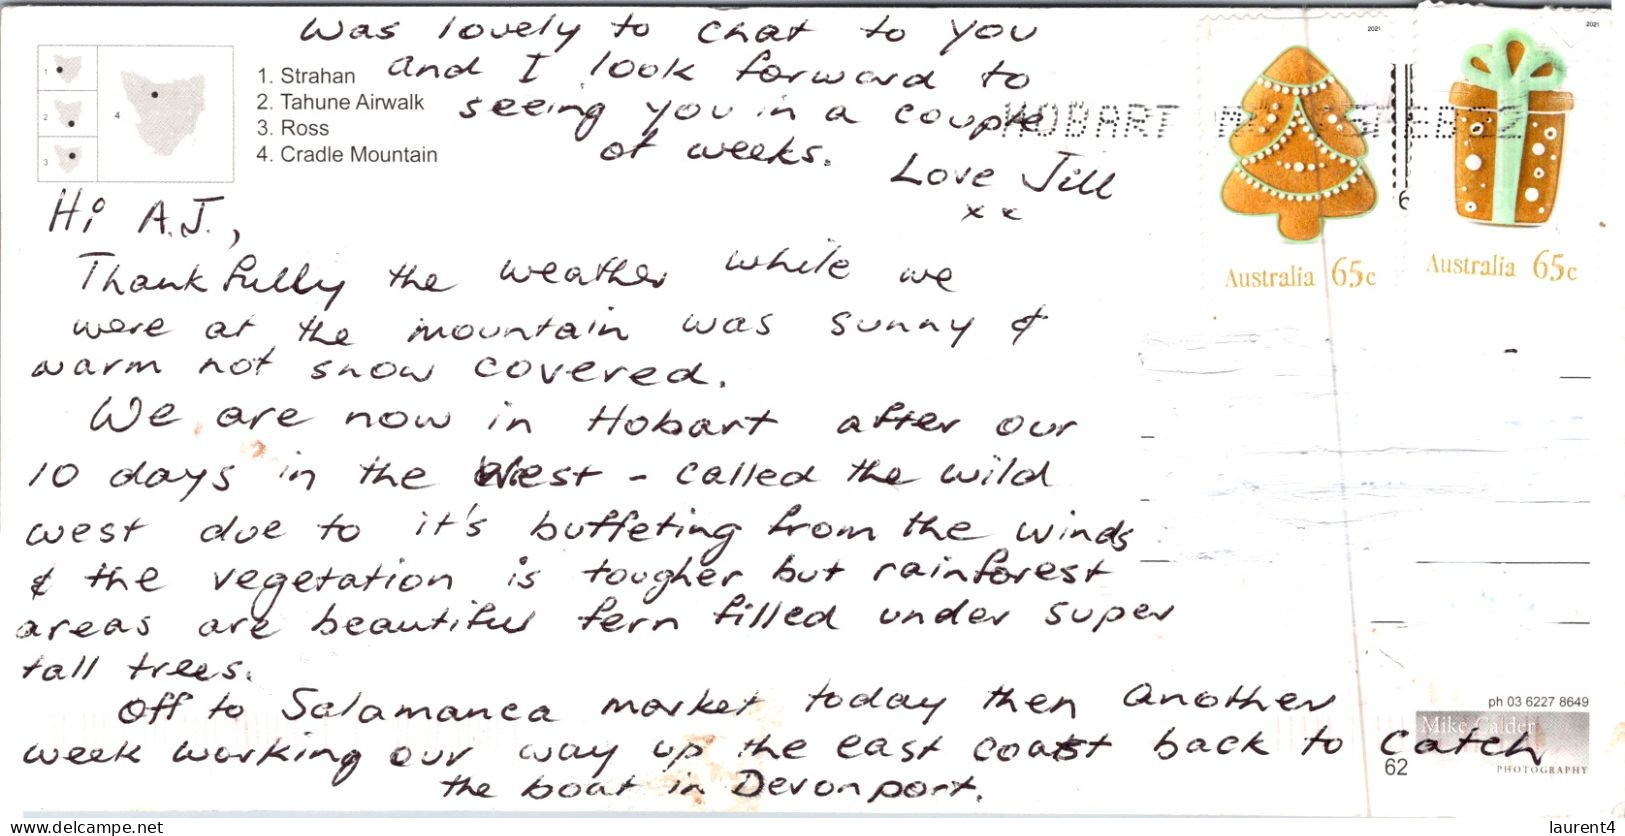 Hi A.J.,
Thankfully the weather while we
were at the mountain was sunny &
warm not snow covered.
We are now in Hobart after our
10 days in the West - called the wild
west due to it's buffeting from the winds
& the vegetation is tougher but rainforest
areas are beautiful fern filled under super
tall trees.
Off to Salamanca market today then another
week working our way up the east coast back to catch
the boat in Devonport.
Was lovely to chat to you
and I look forward to
seeing you in a couple
of weeks.
Love Jill
x x
1
2
3
4
1. Strahan
2. Tahune Airwalk
3. Ross
4. Cradle Mountain
HOBART
2021
Australia 65c
2021
Australia 65c
6
ph 03 6227 8649
Mike Calder
PHOTOGRAPHY
62
delcampe.net
laurent4